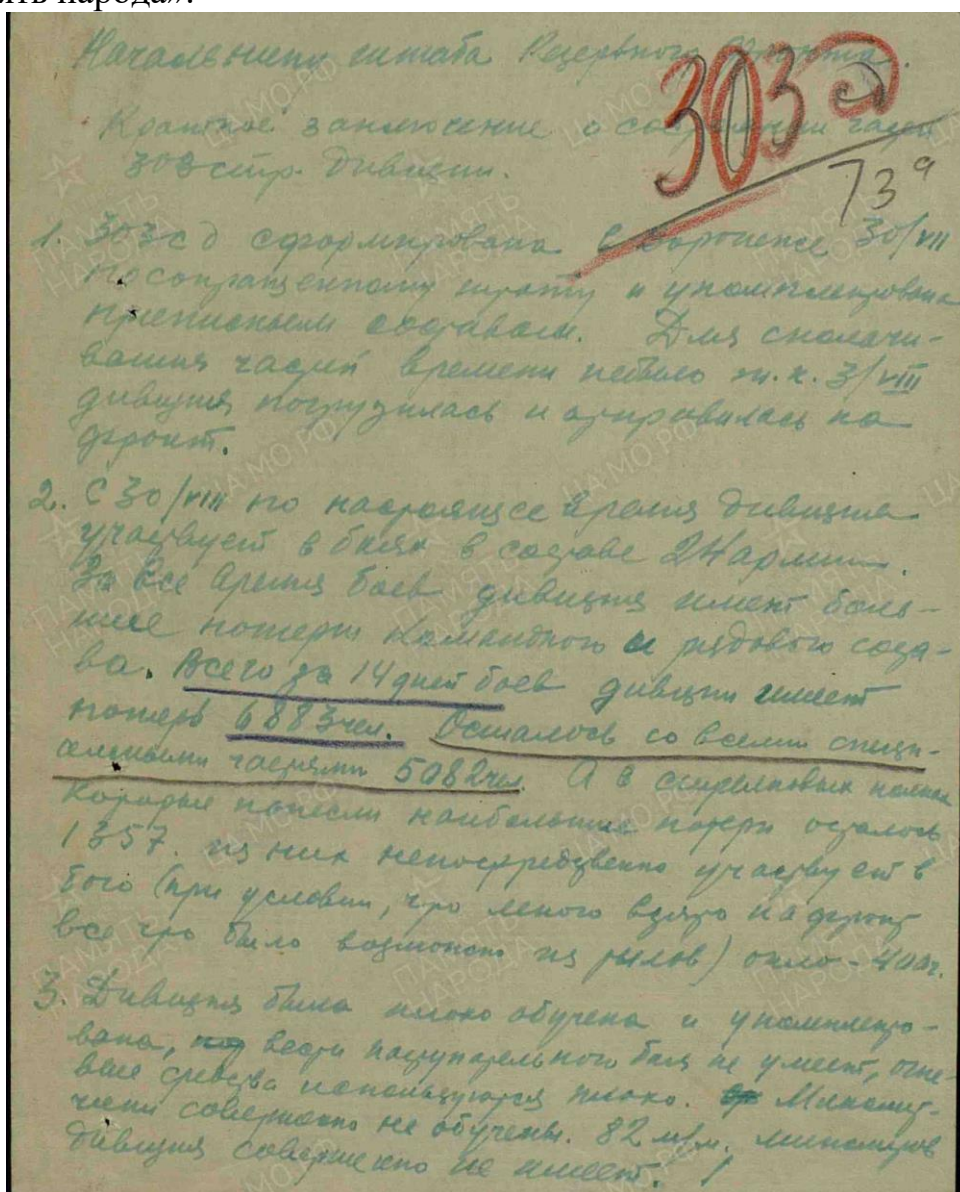 ять народа».
Начальнику штаба Резервного фронта.
303 сд
Краткое заключение о состоянии частей
303 стр. дивизии.
73а
1. 303 сд сформирована в Воронеже 30/VII
по сокращенному штату и укомплектована
приписным составом. Для сколачи-
вания частей времени небыло т.к. 3/VIII
дивизия погрузилась и отправилась на
фронт.
2. С 30/VIII по настоящее время дивизия
участвует в боях в составе 24 армии.
За все время боев дивизия имеет боль-
шие потери командного и рядового соста-
ва. Всего за 14 дней боев дивизия имеет
потерь 6883 чел. Осталось со всеми специ-
альными частями 5082 чел. А в стрелковых полках
которые понесли наибольшие потери осталось
1357. из них непосредственно участвует в
бою (при условии, что мною взято на фронт
все что было возможно из тылов) около - 400ч.
3. Дивизия была плохо обучена и укомплекто-
вана, вести наступательного боя не умеет, огне-
вые средства используются плохо. Миномет-
чики совершенно не обучены. 82 м/м. минометов
дивизия совершенно не имеет.
ПАМЯТЬ НАРОДА
ЦАМО РФ